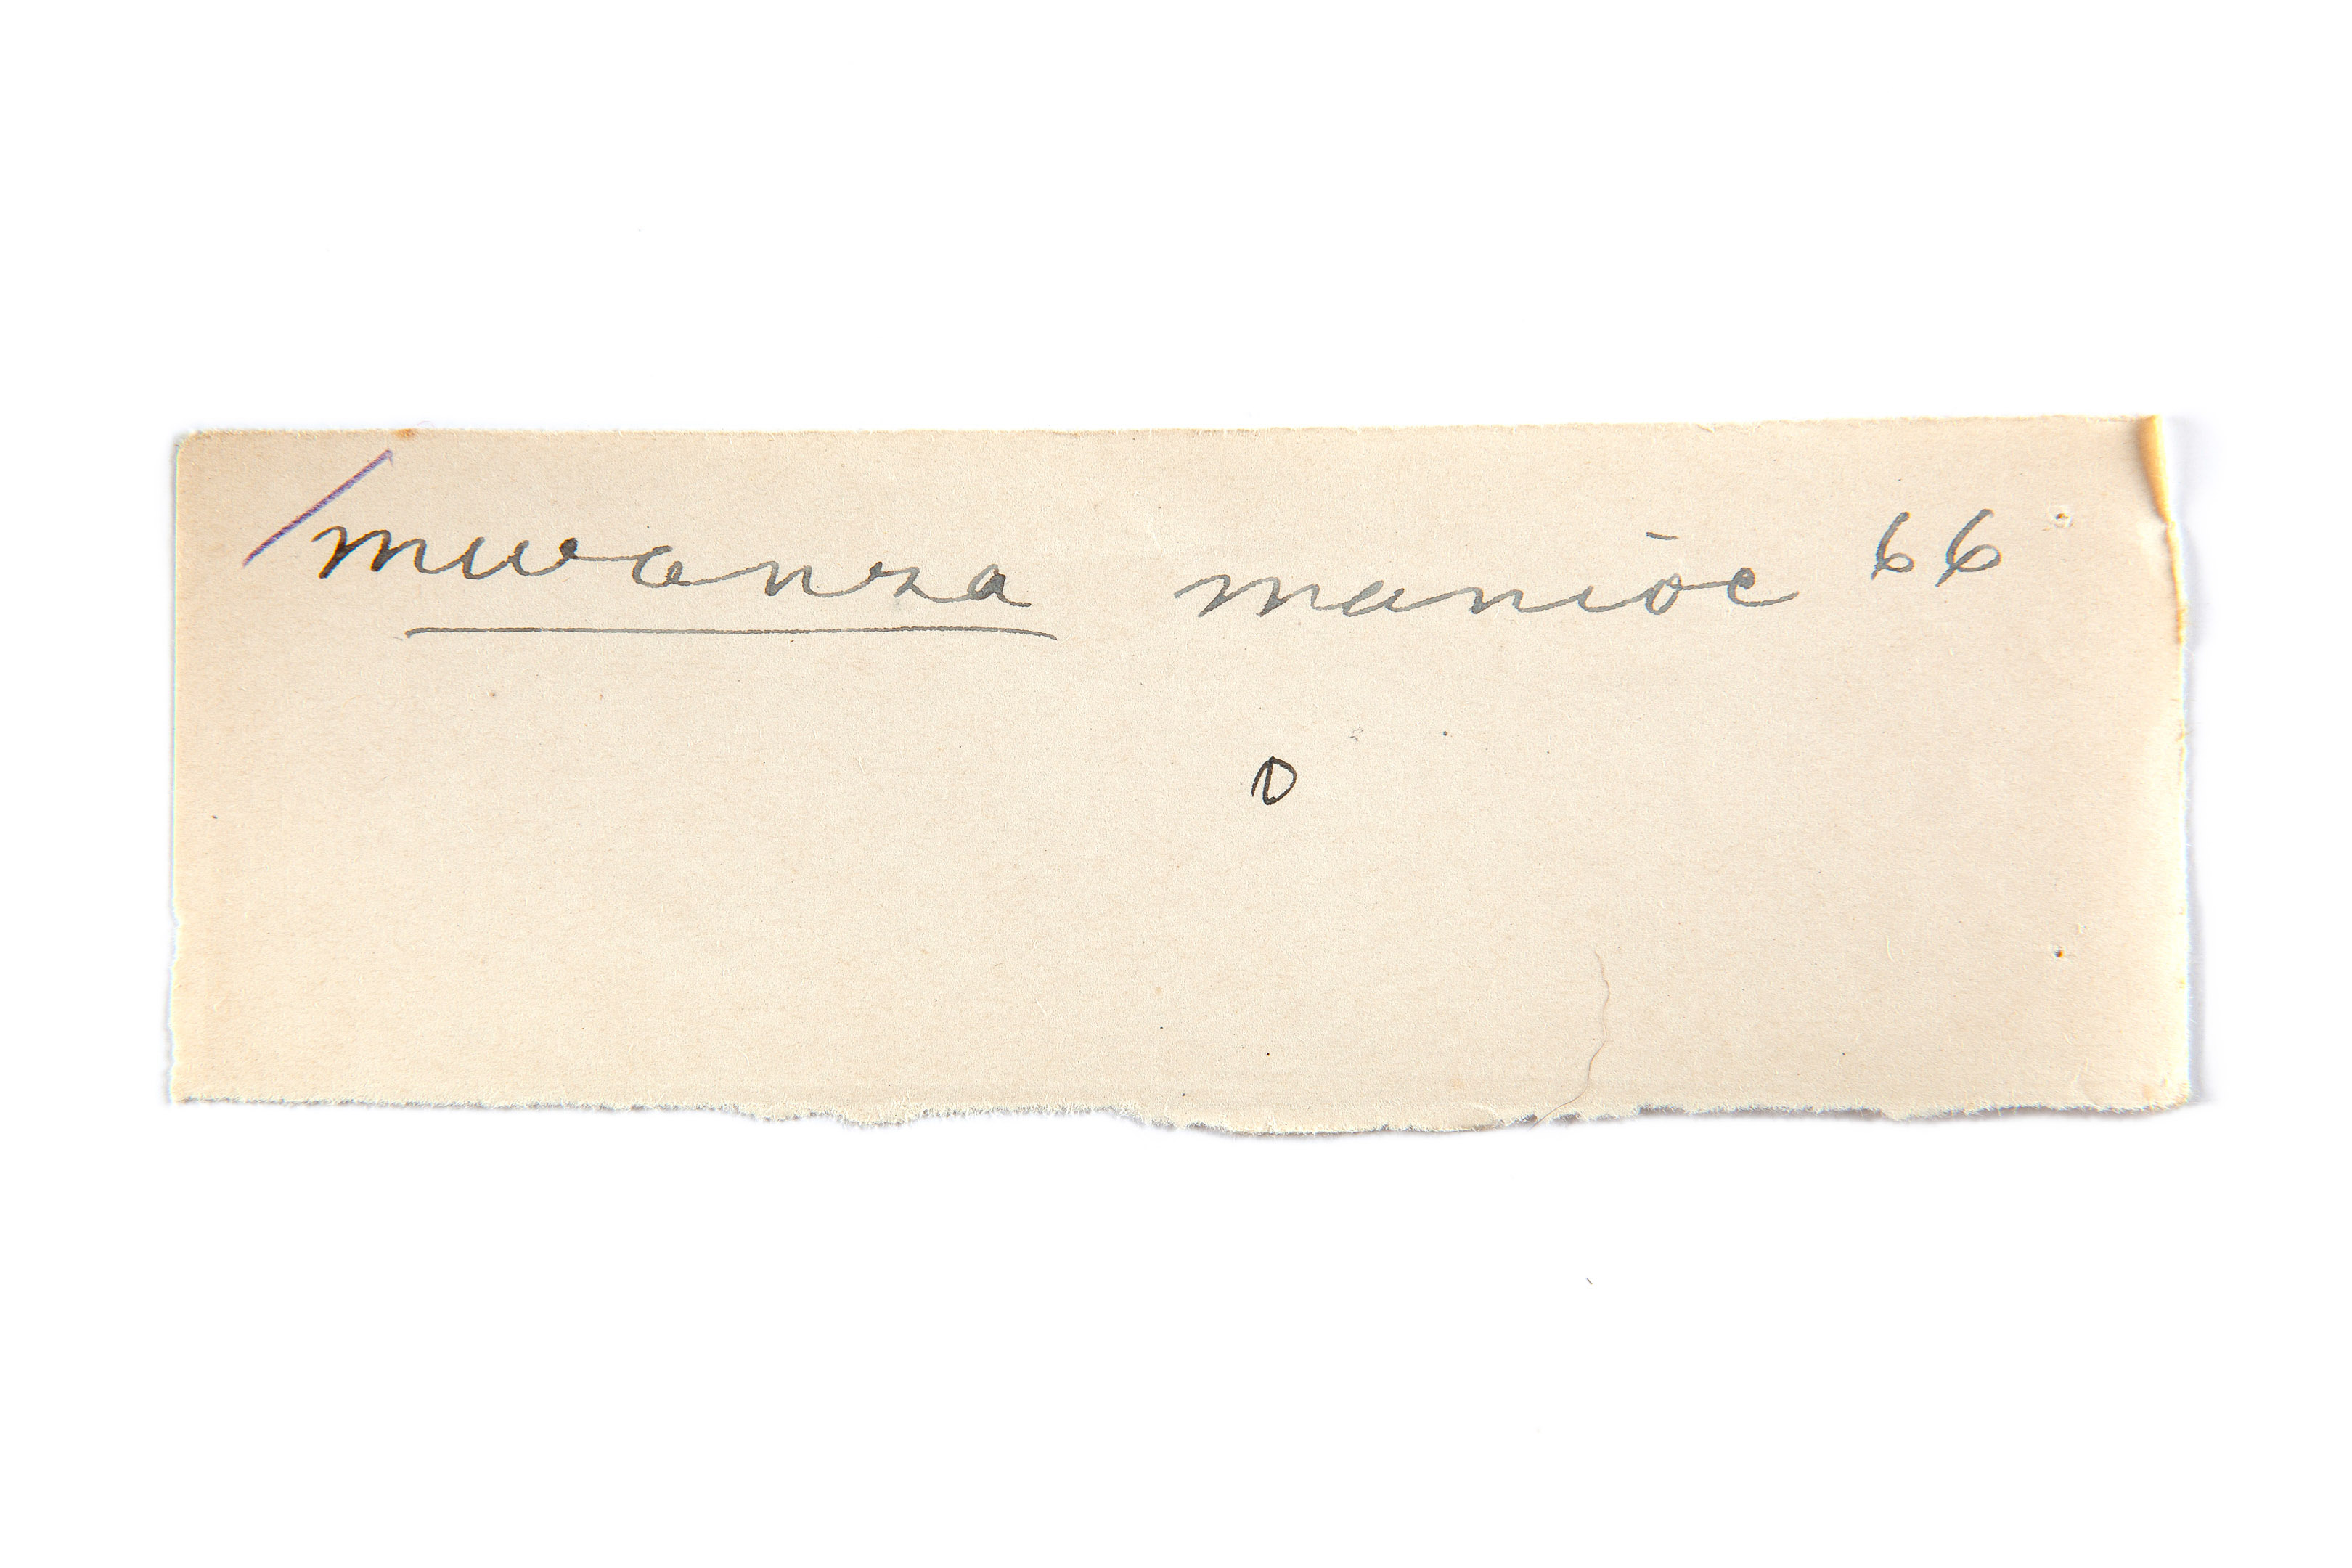 /mwanza manioc 66
D